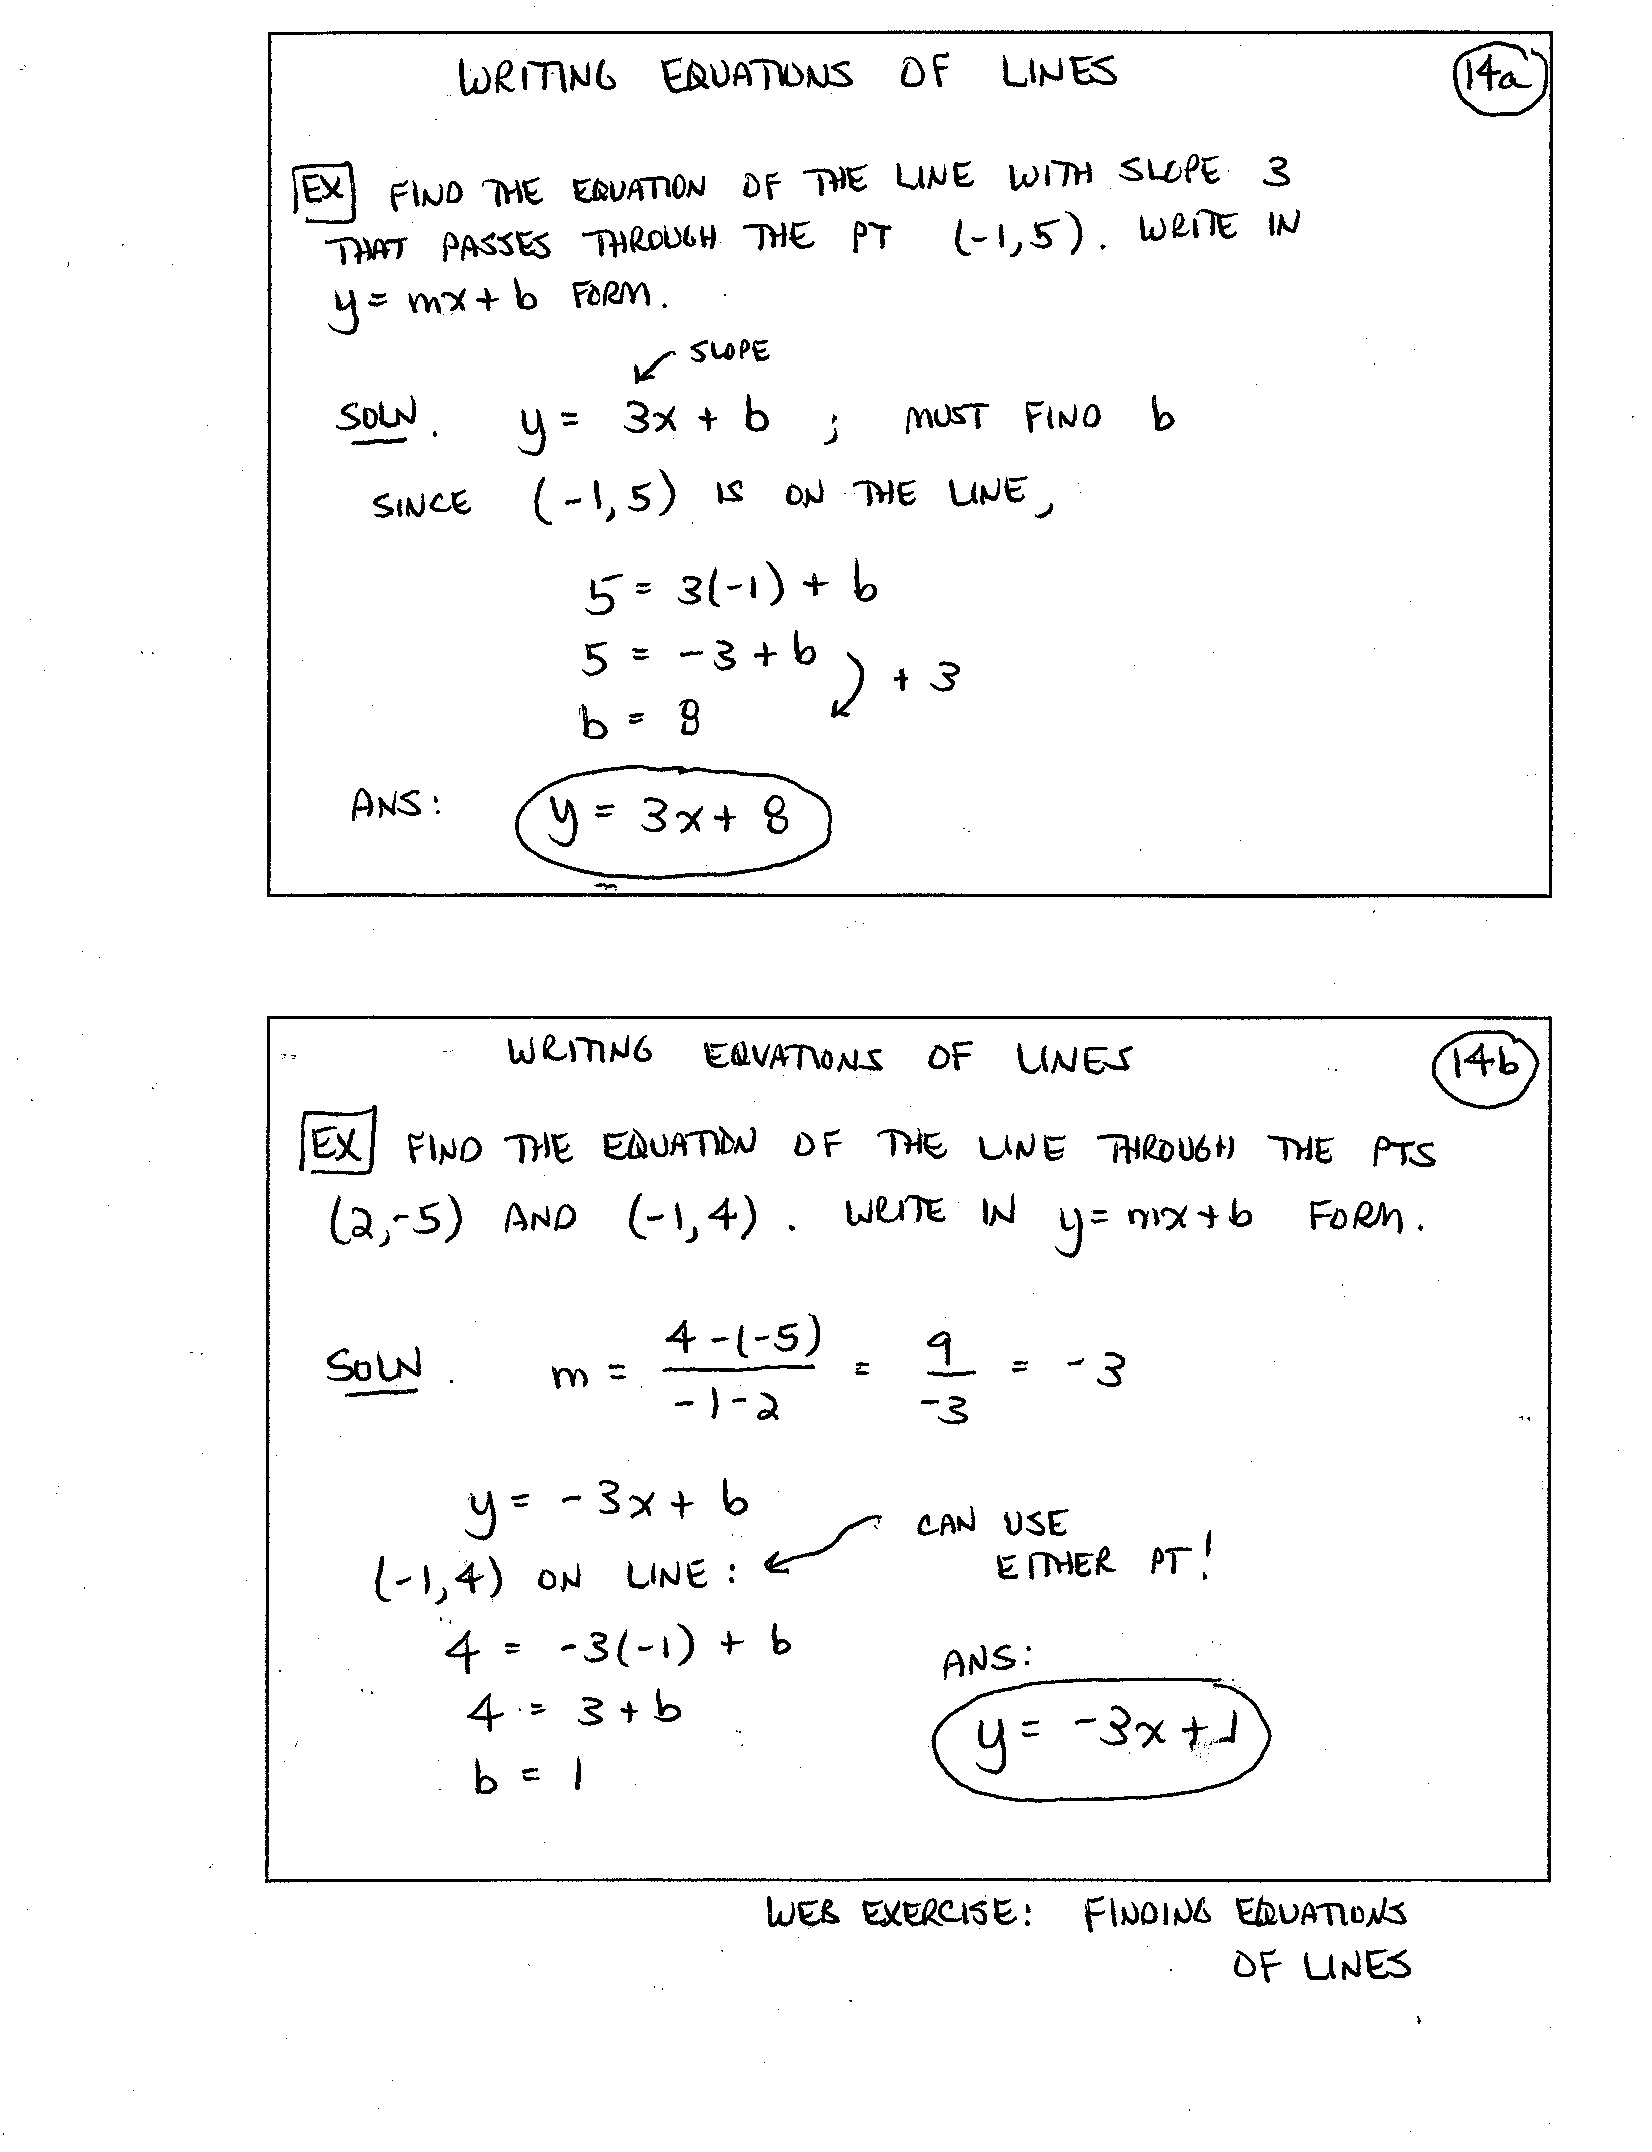 WRITING EQUATIONS OF LINES
14a
EX FIND THE EQUATION OF THE LINE WITH SLOPE 3
THAT PASSES THROUGH THE PT (-1,5). WRITE IN
y = mx + b FORM.
SLOPE
SOLN. y = 3x + b ; MUST FIND b
SINCE (-1,5) IS ON THE LINE,
5 = 3(-1) + b
5 = -3 + b
+ 3
b = 8
ANS: y = 3x + 8
WRITING EQUATIONS OF LINES
14b
EX FIND THE EQUATION OF THE LINE THROUGH THE PTS
(2,-5) AND (-1,4). WRITE IN y = mx + b FORM.
SOLN. m = 4-(-5) / -1-2 = 9 / -3 = -3
y = -3x + b
CAN USE
(-1,4) ON LINE:
EITHER PT!
4 = -3(-1) + b
4 = 3 + b
b = 1
ANS:
y = -3x + 1
WEB EXERCISE: FINDING EQUATIONS
OF LINES